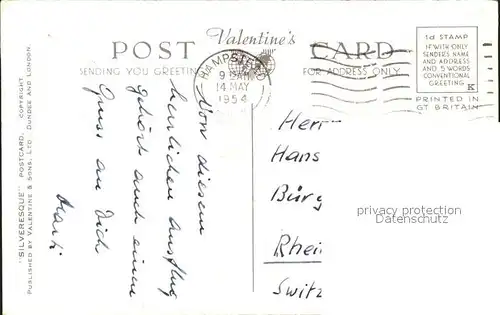 Valentine's
POST CARD
SENDING YOU GREETIN
FOR ADDRESS ONLY
HAMPSTEAD
9 15AM
14 MAY
1954
1d STAMP
IF WITH ONLY
SENDER'S NAME
AND ADDRESS
AND 5 WORDS
CONVENTIONAL
GREETING
K
PRINTED IN
GT BRITAIN
"SILVERESQUE" POSTCARD. COPYRIGHT.
PUBLISHED BY VALENTINE & SONS, LTD. DUNDEE AND LONDON.
Von diesem
herrlichen Ausflug
gehört auch einen
Gruss an Dich
Herr
Hans
Bürg
Rhei
Switz
privacy protection
Datenschutz